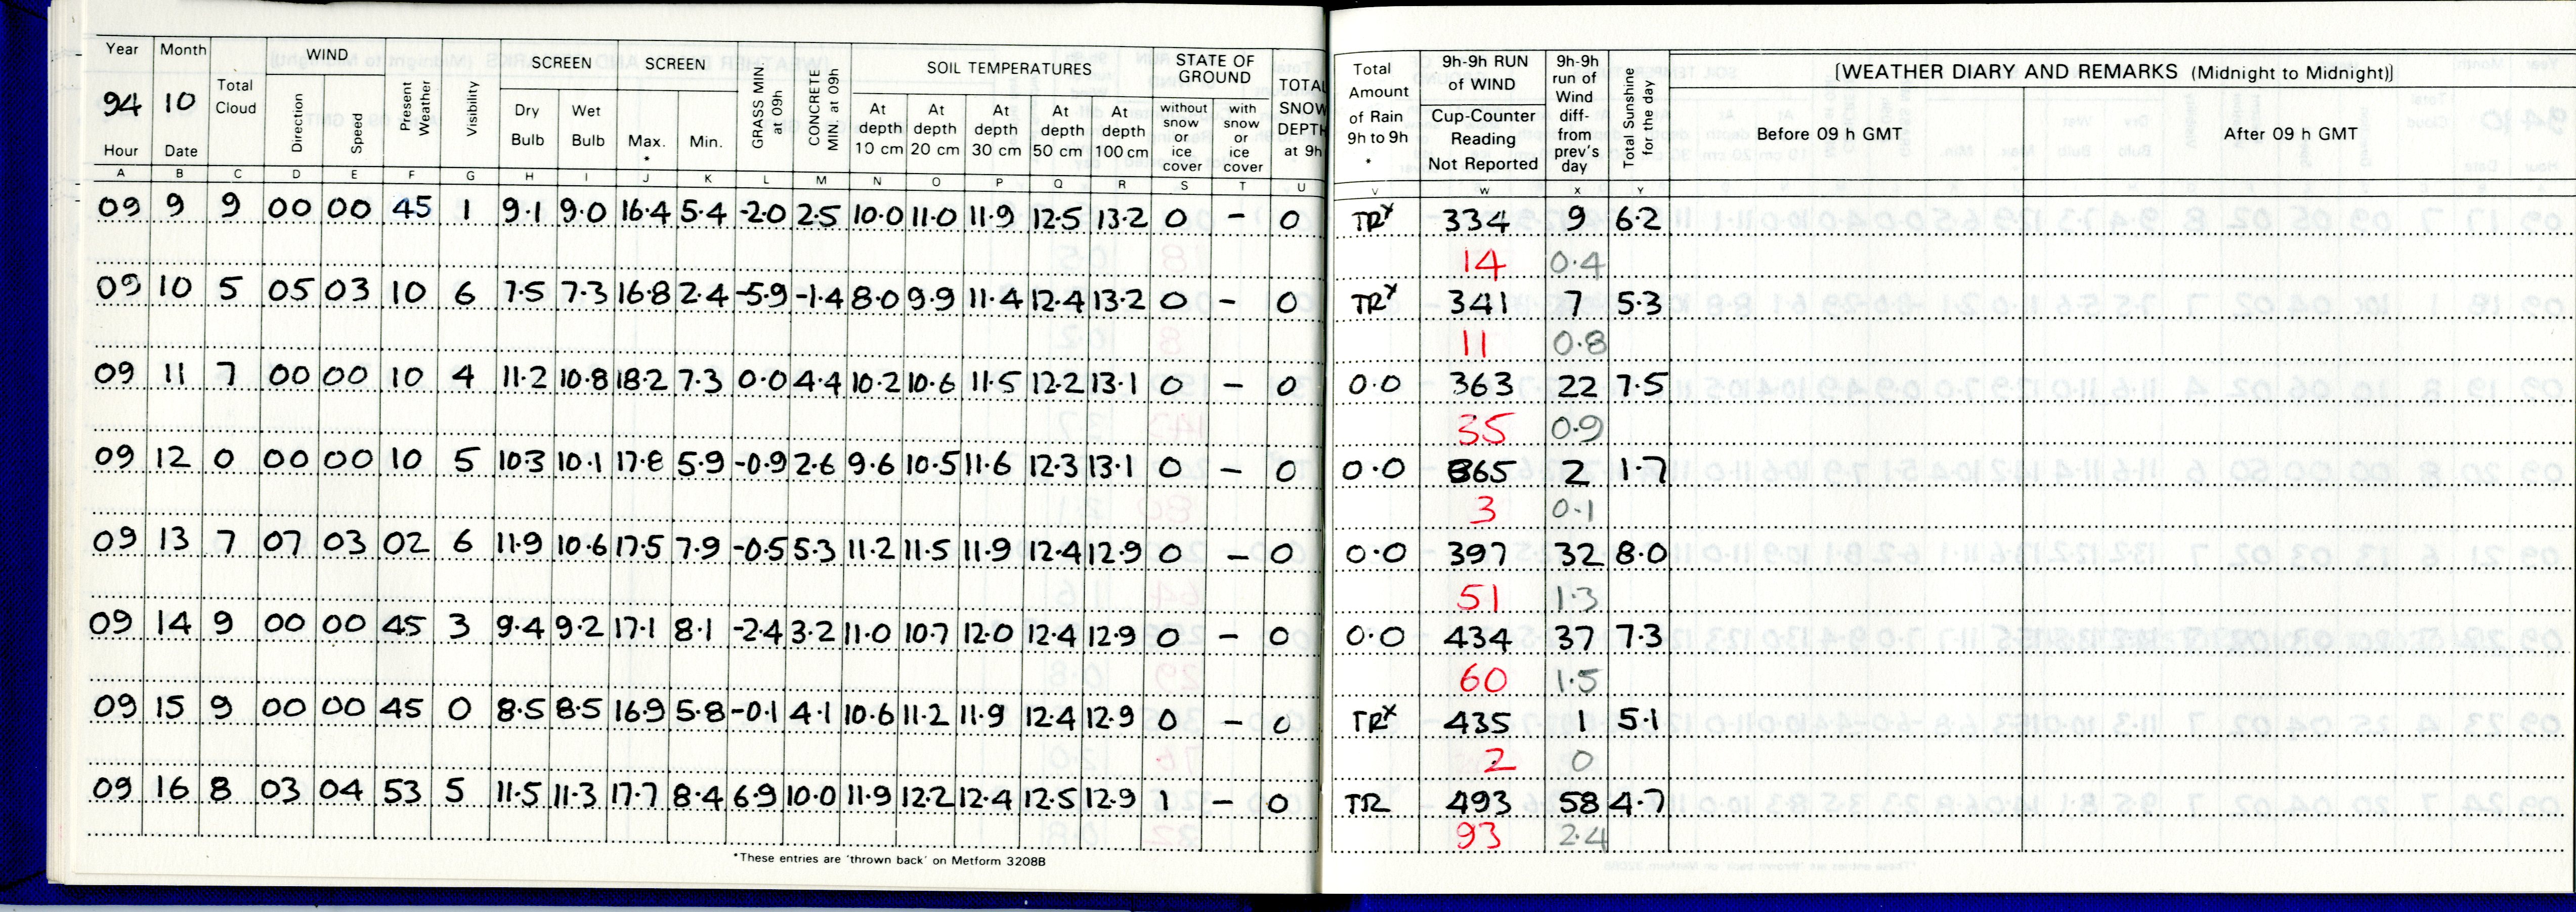 Year Month WIND SCREEN SCREEN SOIL TEMPERATURES STATE OF GROUND
94 10 Total Cloud Direction Speed Present Weather Visibility Dry Bulb Wet Bulb Max. * Min. GRASS MIN at 09h CONCRETE MIN at 09h At depth 10 cm At depth 20 cm At depth 30 cm At depth 50 cm At depth 100 cm without snow or ice cover with snow or ice cover TOTAL SNOW DEPTH at 9h
Hour Date
Total Amount of Rain 9h to 9h * 9h-9h RUN of WIND Cup-Counter Reading Not Reported 9h-9h run of Wind diff- from prev's day Total Sunshine for the day [WEATHER DIARY AND REMARKS (Midnight to Midnight)]
Before 09 h GMT After 09 h GMT
A B C D E F G H I J K L M N O P Q R S T U V W X Y
09 9 9 00 00 45 1 9.1 9.0 16.4 5.4 -2.0 2.5 10.0 11.0 11.9 12.5 13.2 0 – 0 TRx 334 9 6.2
14 0.4
09 10 5 05 03 10 6 7.5 7.3 16.8 2.4 -5.9 -1.4 8.0 9.9 11.4 12.4 13.2 0 – 0 TRx 341 7 5.3
11 0.8
09 11 7 00 00 10 4 11.2 10.8 18.2 7.3 0.0 4.4 10.2 10.6 11.5 12.2 13.1 0 – 0 0.0 363 22 7.5
35 0.9
09 12 0 00 00 10 5 10.3 10.1 17.8 5.9 -0.9 2.6 9.6 10.5 11.6 12.3 13.1 0 – 0 0.0 365 2 1.7
3 0.1
09 13 7 07 03 02 6 11.9 10.6 17.5 7.9 -0.5 5.3 11.2 11.5 11.9 12.4 12.9 0 – 0 0.0 397 32 8.0
51 1.3
09 14 9 00 00 45 3 9.4 9.2 17.1 8.1 -2.4 3.2 11.0 10.7 12.0 12.4 12.9 0 – 0 0.0 434 37 7.3
60 1.5
09 15 9 00 00 45 0 8.5 8.5 16.9 5.8 -0.1 4.1 10.6 11.2 11.9 12.4 12.9 0 – 0 TRx 435 1 5.1
2 0
09 16 8 03 04 53 5 11.5 11.3 17.7 8.4 6.9 10.0 11.9 12.2 12.4 12.5 12.9 1 – 0 TR 493 58 4.7
93 2.4
*These entries are 'thrown back' on Metform 3208B